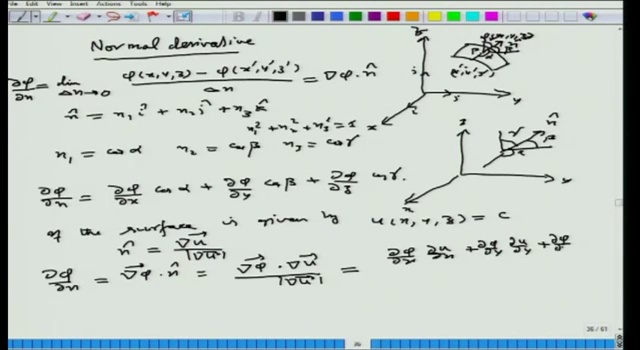 Edit View Insert Actions Tools Help
Normal derivative
∂φ/∂n = lim Δn→0 (φ(x,y,z) − φ(x',y',z'))/Δn = ∇φ · n̂
n̂ = n₁ î + n₂ ĵ + n₃ k̂
n₁² + n₂² + n₃² = 1
n₁ = cos α n₂ = cos β n₃ = cos γ
∂φ/∂n = ∂φ/∂x cos α + ∂φ/∂y cos β + ∂φ/∂z cos γ.
If the surface is given by u(x, y, z) = c
n̂ = ∇u/|∇u|
∂φ/∂n = ∇φ · n̂ = ∇φ · ∇u/|∇u| = ∂φ/∂x ∂u/∂x + ∂φ/∂y ∂u/∂y + ∂φ/∂
z
y
x
(x',y',z')
z
n̂
γ
β
α
y
x
36
36 / 61